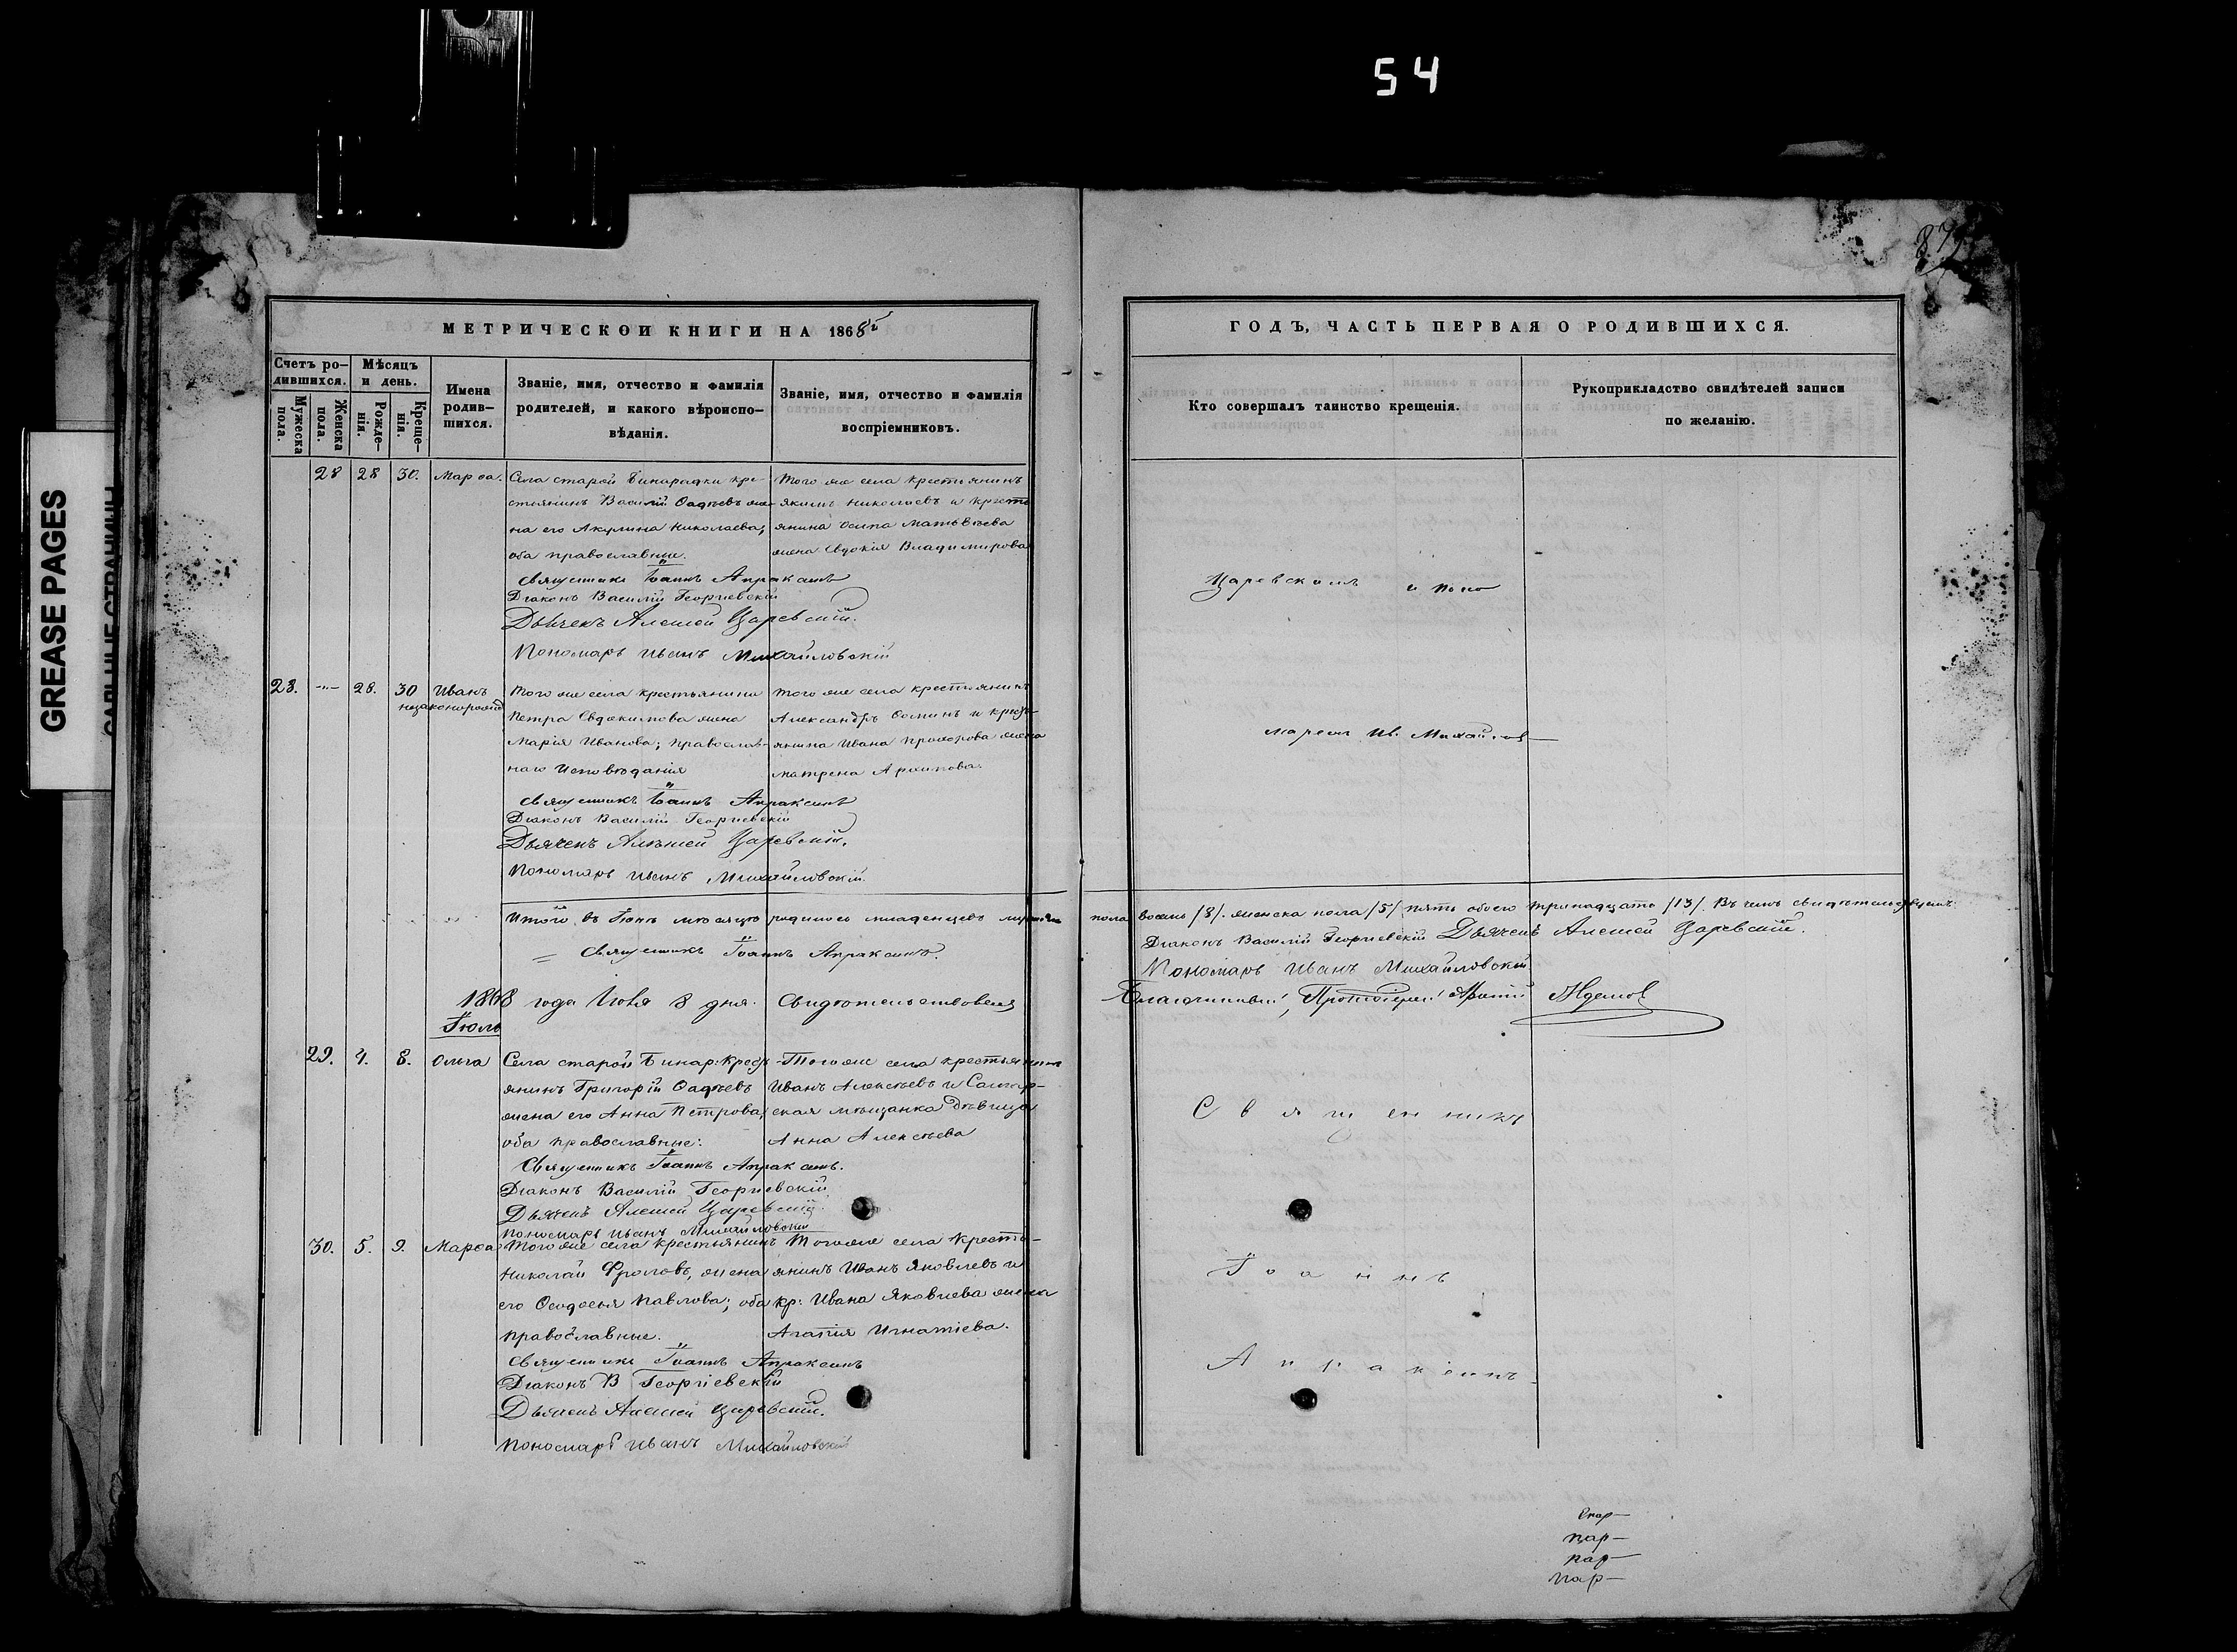 54
87
GREASE PAGES
МЕТРИЧЕСКОЙ КНИГИ НА 1868й
ГОДЪ, ЧАСТЬ ПЕРВАЯ О РОДИВШИХСЯ.
Счетъ ро-
дившихся.
Мужеска пола.
Женска пола.
Мѣсяцъ
и день.
Рожде-
нія.
Креще-
нія.
Имена
родив-
шихся.
Званіе, имя, отчество и фамилія
родителей, и какого вѣроиспо-
вѣданія.
Званіе, имя, отчество и фамилія
воспріемниковъ.
Кто совершалъ таинство крещенія.
Рукоприкладство свидѣтелей записи
по желанію.
28 28 30. Марѳа.
Села старой Бинарадки кре-
стьянинъ Василій Ѳадѣевъ же-
на его Акулина Николаева;
оба православные.
Того же села крестьянинъ
Якимъ Николаевъ и кресть
янина Осипа Матвѣева
жена Евдокія Владимирова
Священникъ Іоаннъ Апраксинъ
Діаконъ Василій Георгіевскій
Дьячекъ Алексей Царевскій.
Пономарь Иванъ Михайловскій
Царевскимъ и поно
28. -"- 28. 30 Иванъ
незаконорожд
Того же села крестьянина
Петра Евдокимова жена
Марія Иванова; православ-
наго исповѣданія
Того же села крестьянинъ
Александръ Осипъ и кресть-
янина Ивана Прохорова жена
Матрена Архипова.
Священникъ Іоаннъ Апраксинъ
Діаконъ Василій Георгіевскій
Дьячекъ Алексей Царевскій.
Пономарь Иванъ Михайловскій.
маремъ Ив. Михайлов
Итого въ Іюнѣ мѣсяцѣ родилось младенцевъ мужеска
пола восемь /8/. женска пола /5/ пять обоего тринадцать /13/. Въ чемъ свидѣтельствуемъ:
Священникъ Іоаннъ Апраксинъ.
Діаконъ Василій Георгіевскій Дьячекъ Алексей Царевскій.
Пономарь Иванъ Михайловскій
1868 года Іюля 8 дня. Свидѣтельствовалъ
Благочинный, Протоіерей
Іюль
29. 4. 8. Ольга
Села старой Бинар: Кресть-
янинъ Григорій Ѳадѣевъ
жена его Анна Петрова;
оба православные.
Того же села крестьянинъ
Иванъ Алексѣевъ и Самар-
ская мѣщанка дѣвица
Анна Алексѣева
Священникъ Іоаннъ Апраксинъ.
Діаконъ Василій Георгіевскій
Дьячекъ Алексей Царевскій.
Пономарь Иванъ Михайловскій
Священникъ
30. 5. 9. Марѳа
Того же села крестьянинъ
Николай Фроловъ, жена
его Ѳеодосья Павлова; оба
православные.
Того же села Кресть-
янинъ Иванъ Яковлевъ и
кр: Ивана Яковлева жена
Агапія Игнатіева.
Священникъ Іоаннъ Апраксинъ
Діаконъ В Георгіевскій
Дьячекъ Алексей Царевскій.
Пономарь Иванъ Михайловскій
Іоаннъ
Апраксинъ
пар-
пар-